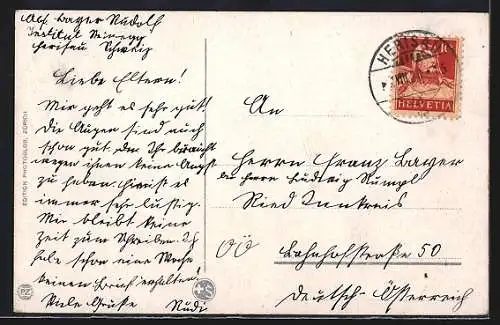 Abs. Bager Rudolf
Institut Minegg
Herisau Schweiz
Liebe Eltern!
Mir geht es sehr gut!
Die Augen sind auch
schon gut den Ihr braucht
wegen ihnen keine Angst
zu haben. hier ist es
immer sehr lustig.
Mir bleibt keine
Zeit zum Schreiben. Ich
habe schon eine Woche
keinen Brief erhalten!
Viele Grüße
Rudi
EDITION PHOTOGLOB, ZÜRICH
PZ
HERISAU
10
HELVETIA
An
Herrn Franz Bager
bei Herrn Ludwig Rumpl
Ried Innkreis
OÖ Bahnhofstraße 50
Deutsch-Österreich